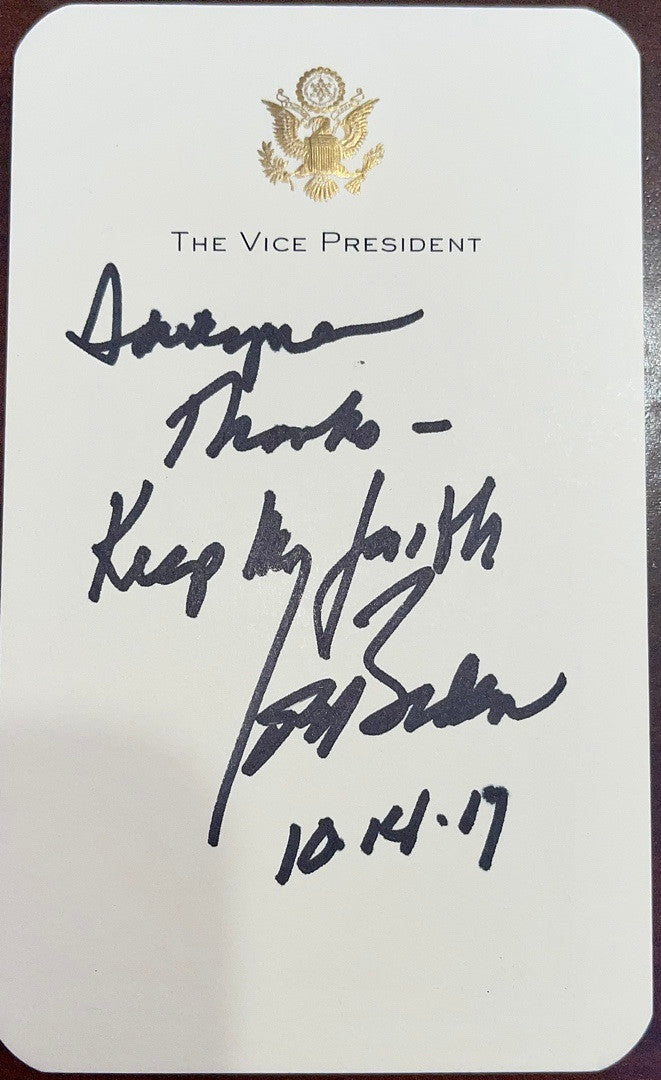 THE VICE PRESIDENT
Dwayne
Thanks -
Keep the faith
Joe Biden
10.14.17